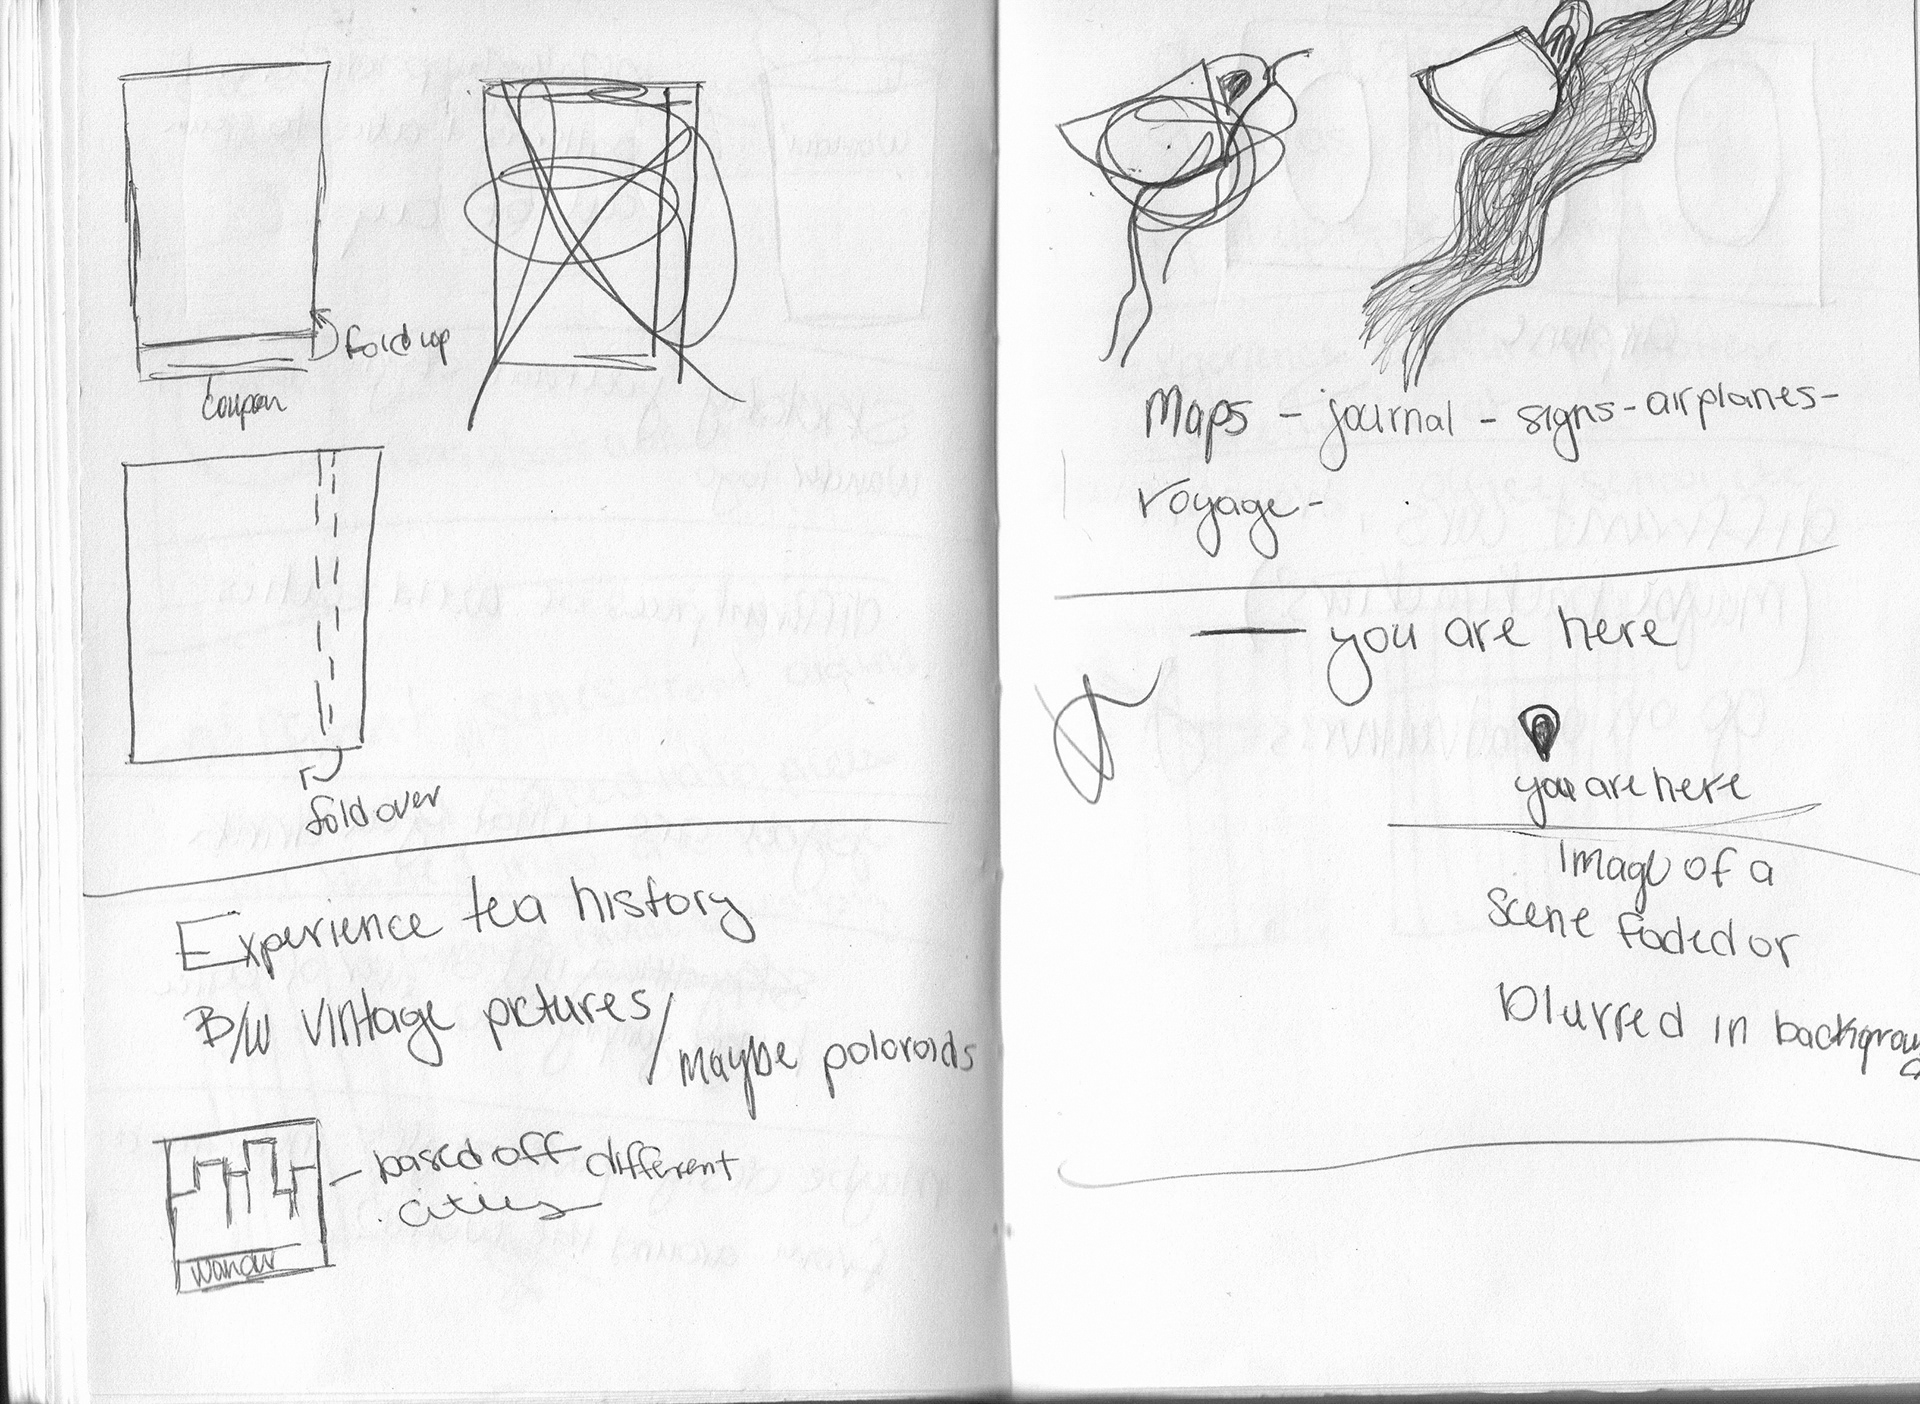 fold up
coupon
fold over
Experience tea history
B/W vintage pictures/
maybe poloroids
based off different
cities
wander
Maps - journal - signs - airplanes -
voyage -
you are here
you are here
Image of a
scene faded or
blurred in background